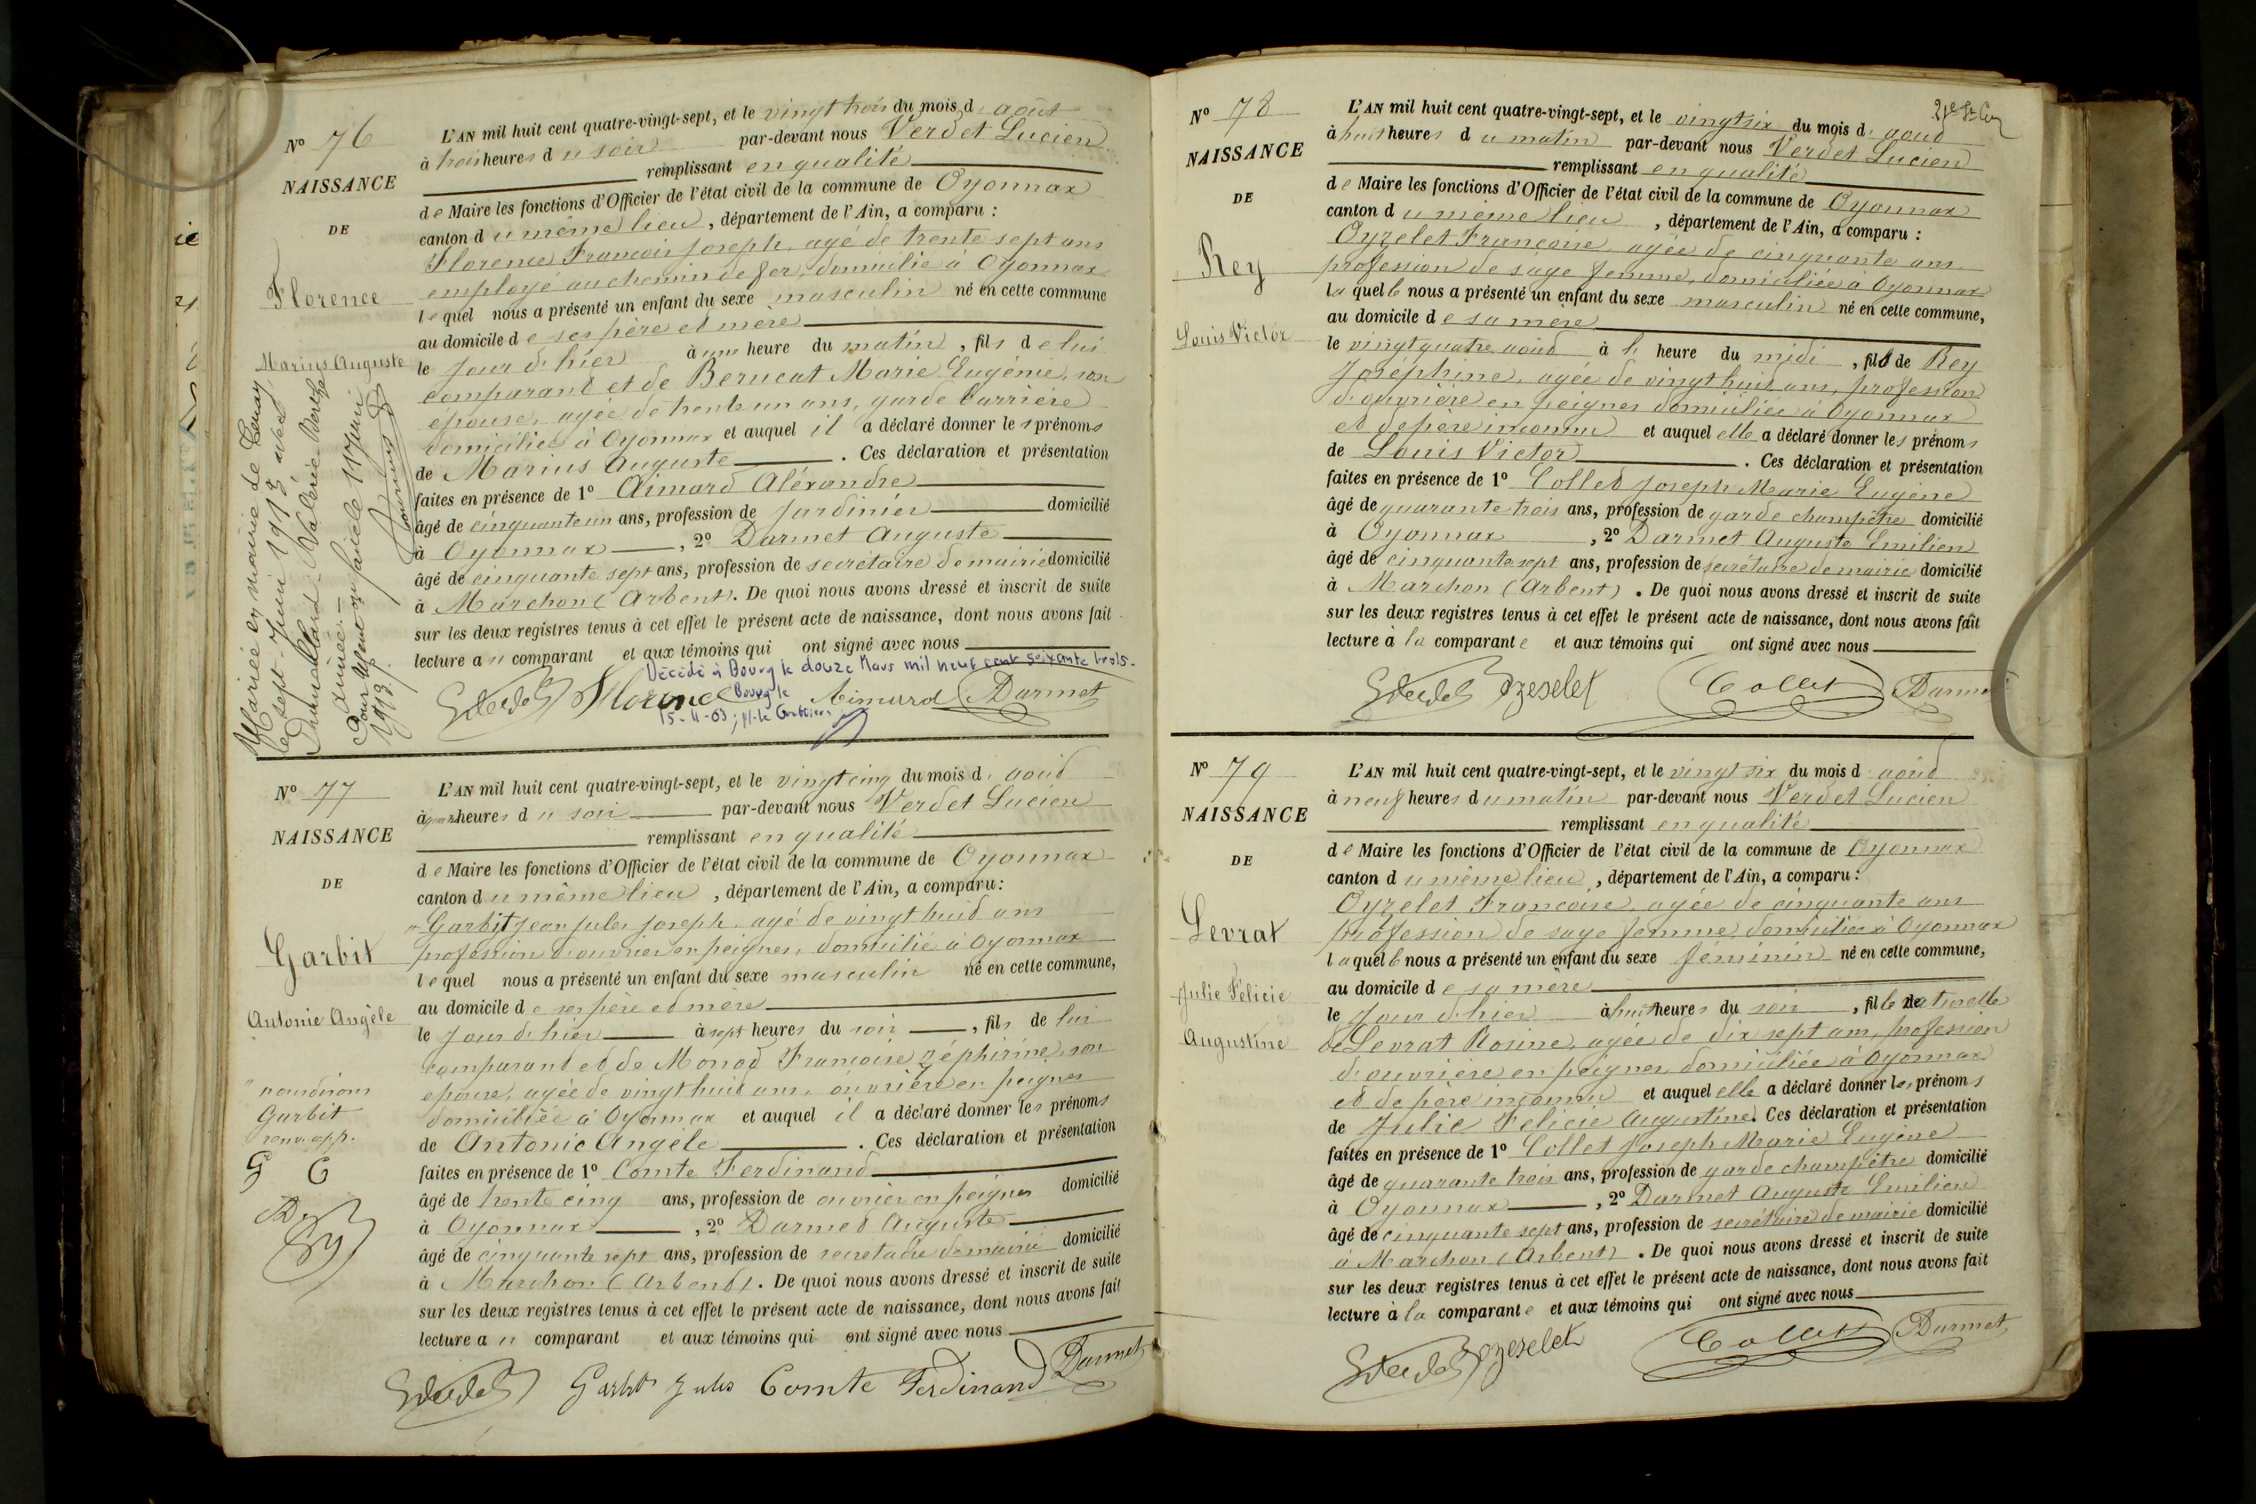 No 76
NAISSANCE
DE
Florence
Marius Auguste
Mariée en mairie de
le sept Juin 1913 avec
Valérie
Aimée.
11 Juin
1913.
L'AN mil huit cent quatre-vingt-sept, et le vingt trois du mois d août
à trois heures du soir par-devant nous Verdet Lucien
remplissant en qualité
de Maire les fonctions d'Officier de l'état civil de la commune de Oyonnax
canton du même lieu, département de l'Ain, a comparu :
Florence François Joseph, agé de trente sept ans
employé au chemin de fer, domicilié à Oyonnax
lequel nous a présenté un enfant du sexe masculin né en cette commune
au domicile de ses père et mère
le jour d'hier à une heure du matin, fils de lui
comparant et de Berucat Marie Eugénie, son
épouse, agée de trente un ans, garde barrière
domiciliée à Oyonnax et auquel il a déclaré donner les prénoms
de Marius Auguste. Ces déclaration et présentation
faites en présence de 1o Aimard Aléxandre
âgé de cinquante un ans, profession de Jardinier domicilié
à Oyonnax, 2o Darmet Auguste
âgé de cinquante sept ans, profession de secrétaire de mairie domicilié
à Marchon (Arbent). De quoi nous avons dressé et inscrit de suite
sur les deux registres tenus à cet effet le présent acte de naissance, dont nous avons fait
lecture au comparant et aux témoins qui ont signé avec nous
Décédé à Bourg le douze Mars mil neuf cent soixante trois.
Bourg le
Verdet Florence Aimard Darmet
No 77
NAISSANCE
DE
Garbit
Antonie Angèle
Garbit
G C
L'AN mil huit cent quatre-vingt-sept, et le vingt cinq du mois d aoud
heures du soir par-devant nous Verdet Lucien
remplissant en qualité
de Maire les fonctions d'Officier de l'état civil de la commune de Oyonnax
canton du même lieu, département de l'Ain, a comparu :
Garbit Jean Jules Joseph, agé de vingt huid ans
profession d'ouvrier en peignes, domicilié à Oyonnax
lequel nous a présenté un enfant du sexe masculin né en cette commune,
au domicile de ses père et mère
le jour d'hier à sept heures du soir, fils de lui
comparant et de Monod Françoise Zéphirine, son
épouse, agée de vingt huid ans, ouvrière en peignes
domiciliée à Oyonnax et auquel il a déclaré donner les prénoms
de Antonie Angèle. Ces déclaration et présentation
faites en présence de 1o Comte Ferdinand
âgé de trente cinq ans, profession de ouvrier en peignes domicilié
à Oyonnax, 2o Darmet Auguste
âgé de cinquante sept ans, profession de secretaire de mairie domicilié
à Marchon (Arbent). De quoi nous avons dressé et inscrit de suite
sur les deux registres tenus à cet effet le présent acte de naissance, dont nous avons fait
lecture au comparant et aux témoins qui ont signé avec nous
Verdet Garbit Jules Comte Ferdinand Darmet
No 78
NAISSANCE
DE
Rey
Louis Victor
L'AN mil huit cent quatre-vingt-sept, et le vingt six du mois d aoud
à huit heures du matin par-devant nous Verdet Lucien
remplissant en qualité
de Maire les fonctions d'Officier de l'état civil de la commune de Oyonnax
canton du même lieu, département de l'Ain, a comparu :
Oyzelet Françoise, agée de cinquante ans
profession de sage femme, domiciliée à Oyonnax
laquelle nous a présenté un enfant du sexe masculin né en cette commune,
au domicile de sa mère
le vingt quatre aoud à heure du midi, fils de Rey
Joséphine, agée de vingt huid ans, profession
d'ouvrière en peignes domiciliée à Oyonnax
et de père inconnu et auquel elle a déclaré donner les prénoms
de Louis Victor. Ces déclaration et présentation
faites en présence de 1o Collet Joseph Marie Eugène
âgé de quarante trois ans, profession de garde champêtre domicilié
à Oyonnax, 2o Darmet Auguste Emilien
âgé de cinquante sept ans, profession de secrétaire de mairie domicilié
à Marchon (Arbent). De quoi nous avons dressé et inscrit de suite
sur les deux registres tenus à cet effet le présent acte de naissance, dont nous avons fait
lecture à la comparante et aux témoins qui ont signé avec nous
Verdet Ozeselet Collet Darmet
No 79
NAISSANCE
DE
Levrat
Julie Félicie
Augustine
L'AN mil huit cent quatre-vingt-sept, et le vingt six du mois d aoud
à neuf heures du matin par-devant nous Verdet Lucien
remplissant en qualité
de Maire les fonctions d'Officier de l'état civil de la commune de Oyonnax
canton du même lieu, département de l'Ain, a comparu :
Oyzelet Françoise, agée de cinquante ans
profession de sage femme, domiciliée à Oyonnax
laquelle nous a présenté un enfant du sexe féminin né en cette commune,
au domicile de sa mère
le jour d'hier à huit heures du soir, fille naturelle
de Levrat Rosine, agée de dix sept ans, profession
d'ouvrière en peignes, domiciliée à Oyonnax
et de père inconnu et auquel elle a déclaré donner les prénoms
de Julie Félicie Augustine. Ces déclaration et présentation
faites en présence de 1o Collet Joseph Marie Eugène
âgé de quarante trois ans, profession de garde champêtre domicilié
à Oyonnax, 2o Darmet Auguste Emilien
âgé de cinquante sept ans, profession de secrétaire de mairie domicilié
à Marchon (Arbent). De quoi nous avons dressé et inscrit de suite
sur les deux registres tenus à cet effet le présent acte de naissance, dont nous avons fait
lecture à la comparante et aux témoins qui ont signé avec nous
Verdet Ozeselet Collet Darmet